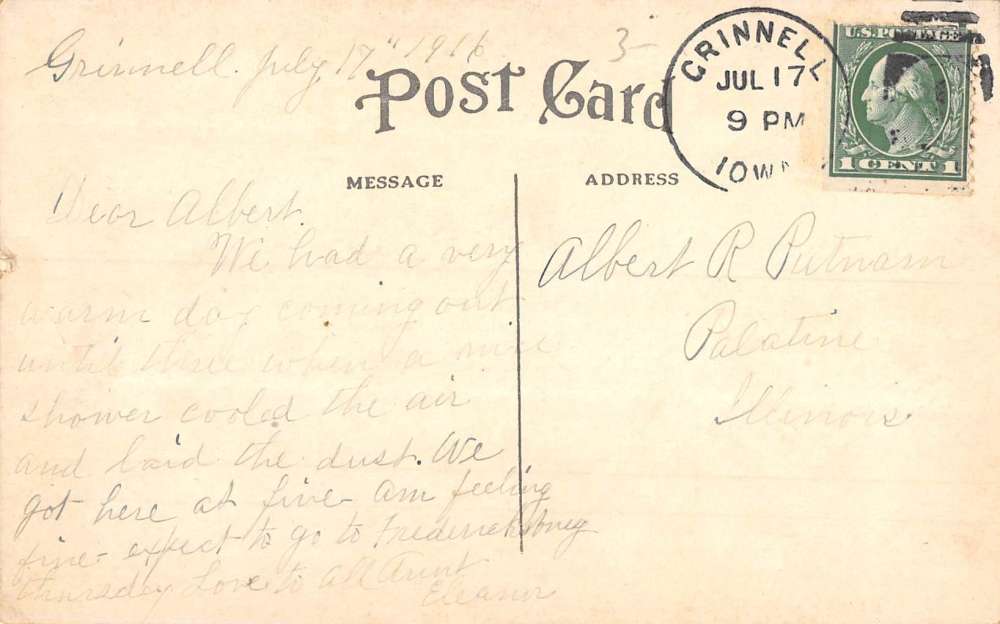 Grinnell. July 17" 1916
3-
Post Card
GRINNELL
JUL 17
9 PM
IOWA
U.S. POSTAGE
1 CENT 1
MESSAGE
ADDRESS
Dear Albert.
We had a very
warm day coming out
until three when a nice
shower cooled the air
and laid the dust. We
got here at five- am feeling
fine- expect to go to Fredericksburg
Thursday Love to all Aunt
Eleanor
Albert R Putnam
Palatine
Illinois